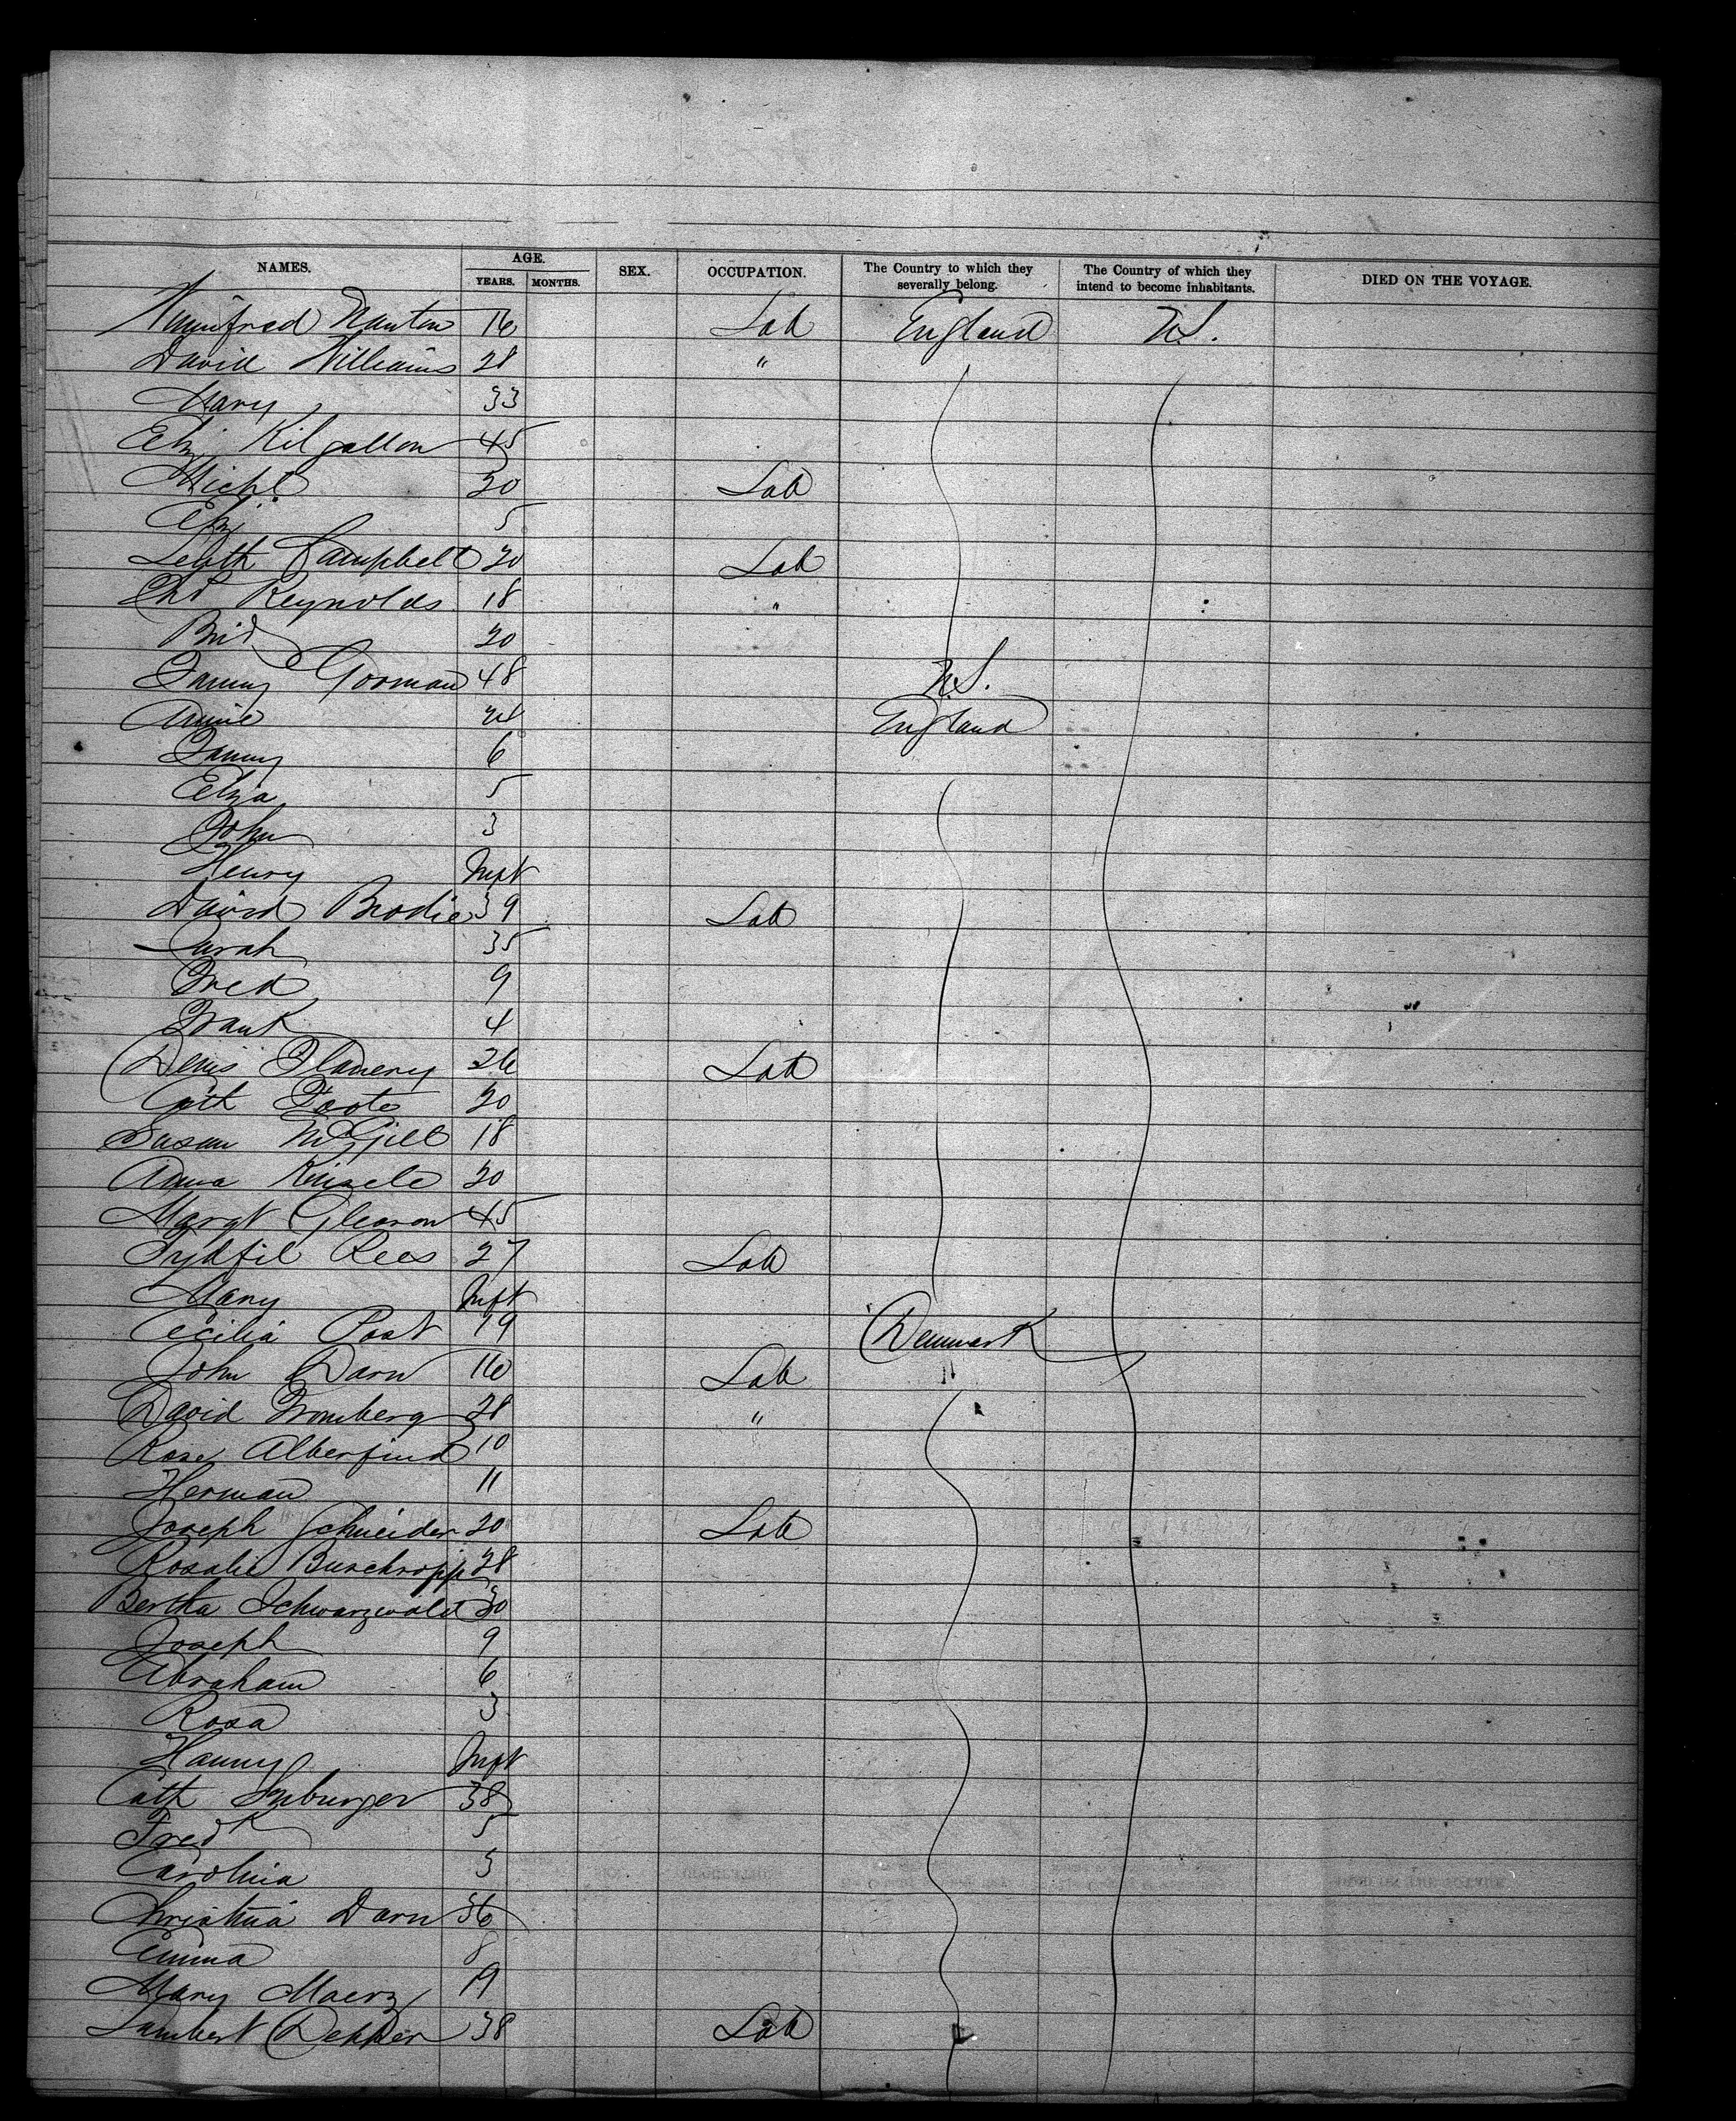 NAMES. AGE. YEARS. MONTHS. SEX. OCCUPATION. The Country to which they severally belong. The Country of which they intend to become inhabitants. DIED ON THE VOYAGE.
Winnifred Manton 16 Lab England U.S.
David Williams 28 "
Mary 33
Eliz Kilgallon 45
Michl 20 Lab
Eliz 5
Campbell 20 Lab
Reynolds 18 "
Brid 20
Fanny Gorman 48 U.S.
Annie 24 England
Fanny 6
Eliza 5
John 3
Henry Inft
David Brodie 39 Lab
Sarah 35
Fred 9
Frank 4
Denis Flanery 26 Lab
Cath Foote 20
Susan McGill 18
Anna Kinsele 20
Margt Gleason 45
Tydfil Rees 27 Lab
Mary Inft
Cecilia Post 19 Denmark
John Darn 16 Lab "
David Fromberg 28 "
Rosa Alberfind 10
Herman 11
Joseph Schneider 20 Lab
Rosalie 28
Bertha Schwarzwald 30
Joseph 9
Abraham 6
Rosa 3
Hanny Inft
Cath 38
Fredk 5
Carolina 3
Christina Darn 36
Emma 8
Mary Maerz 19
Lambert Dekker 38 Lab